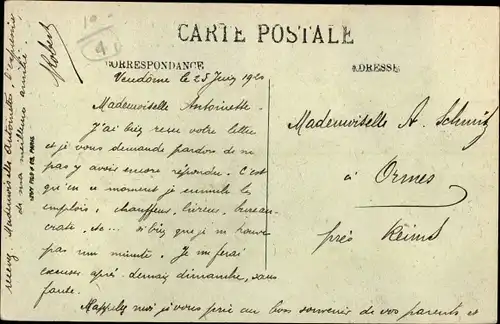 CARTE POSTALE
CORRESPONDANCE
ADRESSE
Vendôme le 25 Juin 1920
Mademoiselle Antoinette.
J'ai bien reçu votre lettre
et je vous demande pardon de ne
pas y avoir encore répondu. C'est
qu'en ce moment je cumule les
emplois, chauffeur, livreur, bureau-
crate, etc... si bien que je ne trouve
pas une minute. Je me ferai
excuser après-demain dimanche, sans
faute.
Rappelez moi je vous prie au bon souvenir de vos parents et
recevez Mademoiselle Antoinette, l'expression
de ma meilleure amitié.
Robert
Mademoiselle A. Schmitz
à
Ormes
près Reims